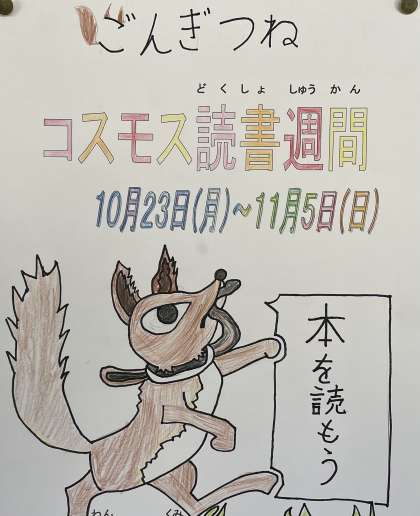 ごんぎつね
どくしょ しゅうかん
コスモス読書週間
10月23日(月)~11月5日(日)
本を読もう
ねん くみ